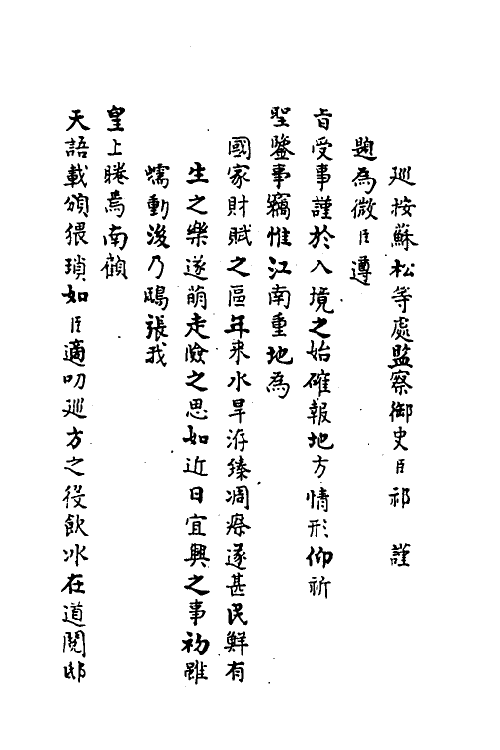 巡按蘇松等處監察御史臣祁　謹
題為微臣遵
旨受事謹於入境之始確報地方情形仰祈
聖鑒事竊惟江南重地為
國家財賦之區年來水旱洊臻凋瘵遂甚民鮮有
生之樂遂萌走險之思如近日宜興之事初雖
蠕動後乃鴟張我
皇上睠焉南顧
天語載頒猥瑣如臣適叨巡方之役飲冰在道閱邸